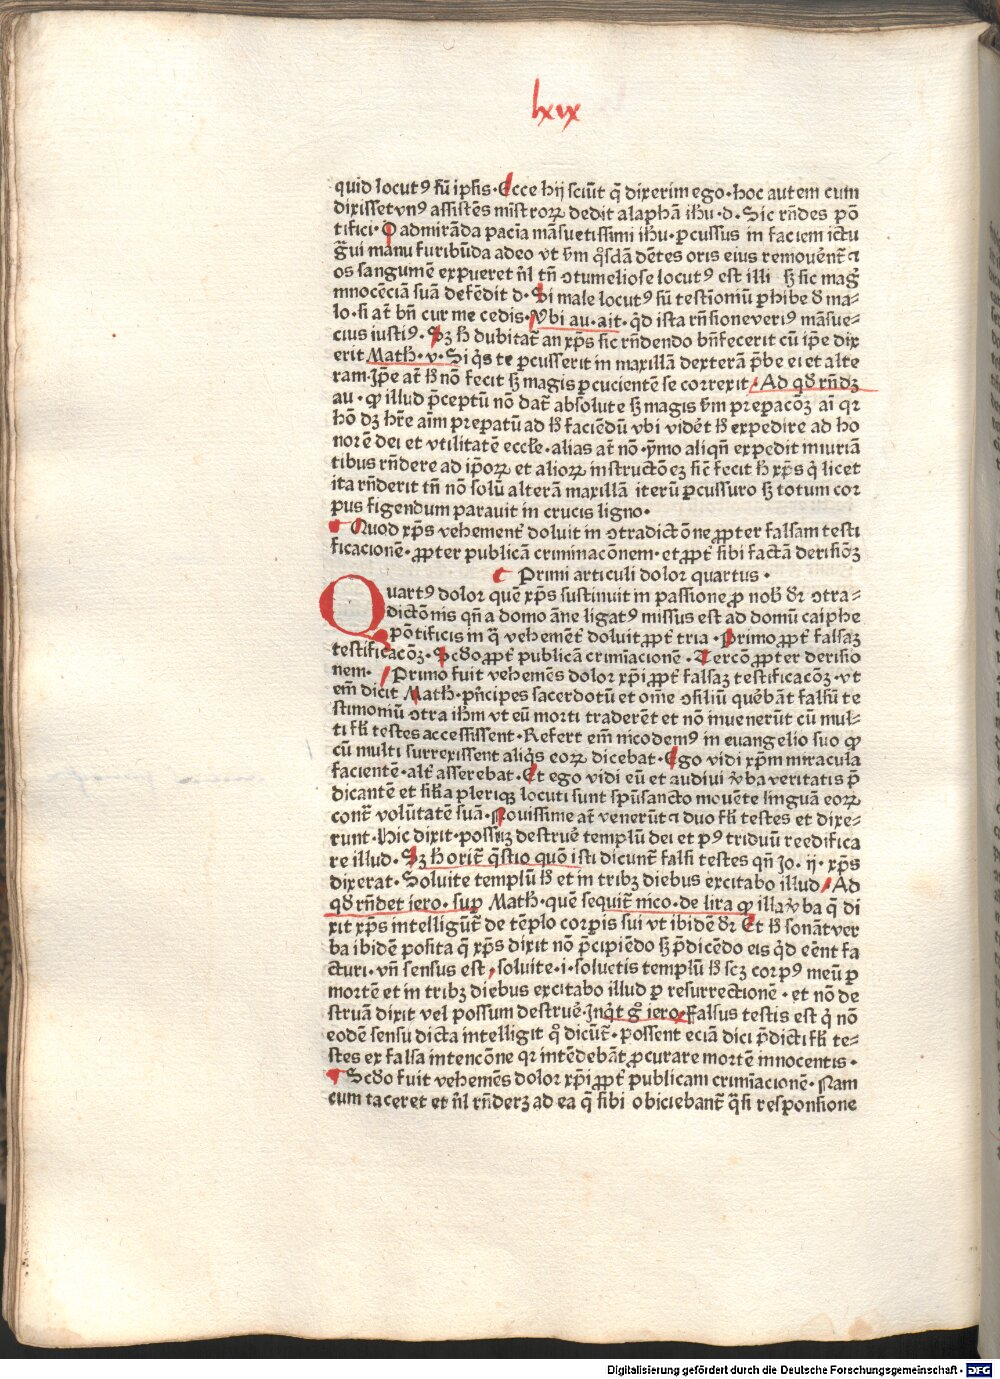 lxix
quid locutꝰ sū ipſis · Ecce hij ſciūt q̄ dixerim ego · hoc autem cum
dixiſſet vnꝰ aſſiſtēs miſtroꝝ dedit alaphā ihu · d · Sic rn̄des pō
tifici · O admirāda pacīa māſuetiſſimi ihu · ꝑcuſſus in faciem ictu
ḡui manu furibūda adeo vt ẜm qͥſdā dētes oris eius remouēnt̄ ⁊
os ſanguinē expueret nͥl tn̄ ↄtumelioſe locutꝰ est illi ſꝫ ſic mag̣
innocēciā ſuā defēdit d · Si male locutꝰ ſū teſtīoniū ꝑhibe de ma-
lo · ſi at̄ bn̄ cur me cedis · Vbi au · ait · qͥd iſta rn̄ſione veriꝰ māſue-
cius iuſtiꝰ · Sꝫ h̄ dubitat̄ an xp̄s ſic rn̄dendo bn̄fecerit cū ip̄e dix
erit Math · v · Si qͥs te ꝑcuſſerit in maxillā dexterā p̄be ei et alte
ram · Ip̄e at̄ h̄ nō fecit ſꝫ magis ꝑcucientē ſe correxit · Ad qd̄ rn̄dꝫ
au · ꝙ illud p̄ceptū nō dat̄ abſolute ſꝫ magis ẜm prepacōꝫ aī qꝛ
hō dꝫ hr̄e aīm prepatū ad h̄ faciēdū vbi vidēt̄ h̄ expedire ad ho
norē dei et vtilitatē eccłe · alias at̄ nō · ymo aliqn̄ expedit iniuriā
tibus rn̄dere ad ip̄oꝝ et alioꝝ inſtructōeꝫ ſic̄ fecit h̄ xp̄s qͥ licet
ita rn̄derit tn̄ nō ſolū alterā maxillā iterū ꝑcuſſuro ſꝫ totum cor
pus figendum parauit in crucis ligno ·
Quod xp̄s vehement̄ doluit in ↄtradictōne ꝓpter falſam teſti
ficacionē · ꝓpter publicā criminacōnem · et ꝓpt̄ ſibi factā deriſiōꝫ
Primi articuli dolor quartus ·
Quartꝰ dolor quē xp̄s ſuſtinuit in paſſione ꝓ nob̄ dr̄ ↄtra-
dictōnis qn̄ a domo āne ligatꝰ miſſus est ad domū caiphe
pōtificis in q̄ vehemēt̄ doluit ꝓpt̄ tria · Primo ꝓpt̄ falſaꝫ
teſtificacōꝫ · Scd̄o ꝓpt̄ publicā crimīacionē · Tercō ꝓpter deriſio
nem · Primo fuit vehemēs dolor xp̄i ꝓpt̄ falſaꝫ teſtificacōꝫ · vt
em̄ dicit Math · pn̄cipes ſacerdotū et om̄e ↄſiliū quēbāt falſū te
ſtimoniū ↄtra ihm̄ vt eū morti traderēt et nō inuenerūt cū mul-
ti fłi teſtes acceſſiſſent · Refert em̄ nicodemꝰ in euangelio ſuo ꝙ
cū multi ſurrexiſſent aliqͥs eoꝝ dicebat · Ego vidi xp̄m miracula
facientē · alt̄ aſſerebat · Et ego vidi eū et audiui v̄ba veritatis p̄
dicantē et ſiłia pleriqꝫ locuti ſunt ſpūſancto mouēte linguā eoꝝ
cont̄ volūtatē ſuā · Nouiſſime at̄ venerūt ⁊ duo fłi teſtes et dixe-
runt · Hic dixit · poſſuꝫ deſtruē templū dei et pꝰ triduū reedifica
re illud · Sꝫ h̄ orit̄ qͥſtio quō iſti dicunt̄ falſi teſtes qn̄ Jo · ij · xp̄s
dixerat · Soluite templū h̄ et in tribꝫ diebus excitabo illud · Ad
qd̄ rn̄det iero · ſuꝑ Math · quē ſequit̄ nico · de lira ꝙ illa v̄ba q̄ di
xit xp̄s intelligūt̄ de tēplo corꝑis ſui vt ibidē dr̄ Et h̄ ſonāt ver
ba ibidē poſita q̄ xp̄s dixit nō p̄cipiēdo ſꝫ p̄dicēdo eis qͥd eēnt fa
cturi · vn̄ ſenſus est, ſoluite · i · ſoluetis templū h̄ ſcꝫ corpꝰ meū ꝑ
mortē et in tribꝫ diebus excitabo illud ꝑ reſurrectionē · et nō de
ſtruā dixit vel poſſum deſtruē · Inqͥt gͦ iero · Falſus teſtis est qͥ nō
eodē ſenſu dicta intelligit qͦ dicūt̄ · poſſent eciā dici p̄dicti fłi te-
ſtes ex falſa intencōne qꝛ intēdebāt ꝓcurare mortē innocentis ·
Scd̄o fuit vehemēs dolor xp̄i ꝓpt̄ publicam crimīacionē · Nam
cum taceret et nͥl rn̄derꝫ ad ea q̄ ſibi obiciebant̄ qͥſi reſponſione
Digitalisierung gefördert durch die Deutsche Forschungsgemeinschaft - DFG